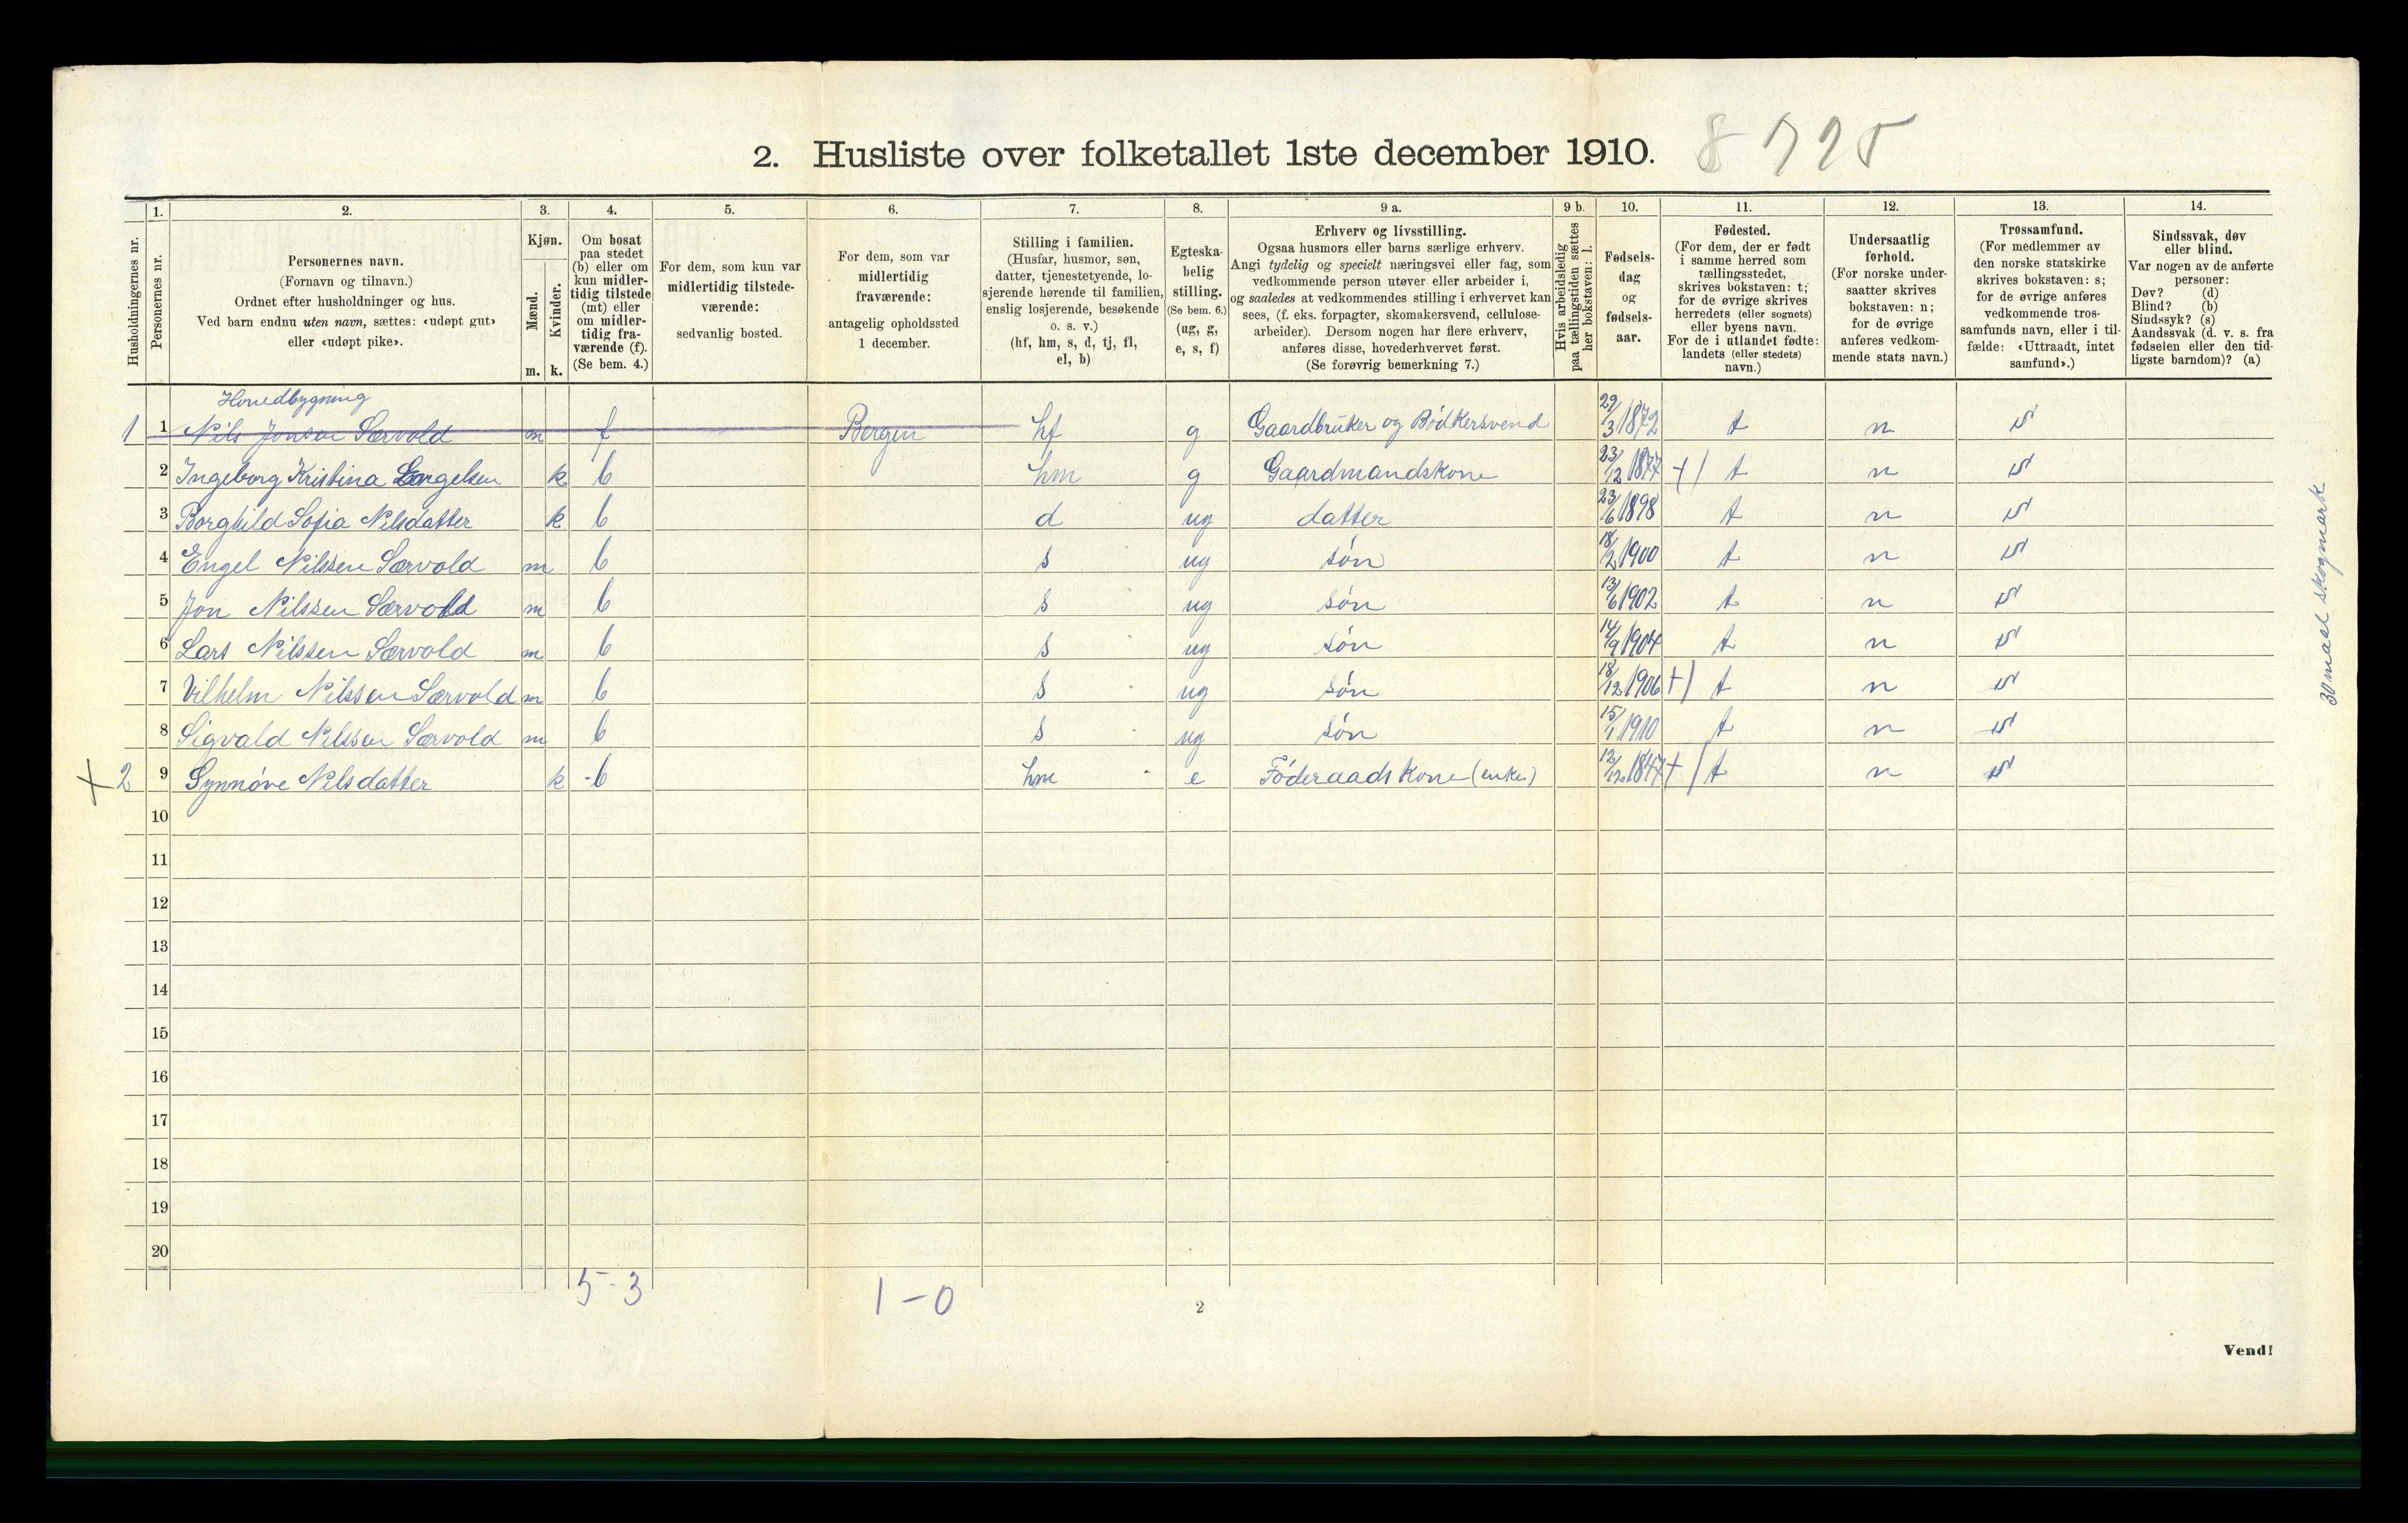 2. Husliste over folketallet 1ste december 1910.
Husholdningernes nr.
1.
Personernes nr.
2.
Personernes navn.
(Fornavn og tilnavn.)
Ordnet efter husholdninger og hus.
Ved barn endnu uten navn, sættes: «udøpt gut»
eller «udøpt pike».
3.
Kjøn.
Mænd.
Kvinder.
m. k.
4.
Om bosat
paa stedet
(b) eller om
kun midler-
tidig tilstede
(mt) eller
om midler-
tidig fra-
værende (f).
(Se bem. 4.)
5.
For dem, som kun var
midlertidig tilstede-
værende:
sedvanlig bosted.
6.
For dem, som var
midlertidig
fraværende:
antagelig opholdssted
1 december.
7.
Stilling i familien.
(Husfar, husmor, søn,
datter, tjenestetyende, lo-
sjerende hørende til familien,
enslig losjerende, besøkende
o. s. v.)
(hf, hm, s, d, tj, fl,
el, b)
8.
Egteska-
belig
stilling.
(Se bem. 6.)
(ug, g,
e, s, f)
9 a.
Erhverv og livsstilling.
Ogsaa husmors eller barns særlige erhverv.
Angi tydelig og specielt næringsvei eller fag, som
vedkommende person utøver eller arbeider i,
og saaledes at vedkommendes stilling i erhvervet kan
sees, (f. eks. forpagter, skomakersvend, cellulose-
arbeider). Dersom nogen har flere erhverv,
anføres disse, hovederhvervet først.
(Se forøvrig bemerkning 7.)
9 b.
Hvis arbeidsledig
paa tællingstiden sættes
her bokstaven: l.
10.
Fødsels-
dag
og
fødsels-
aar.
11.
Fødested.
(For dem, der er født
i samme herred som
tællingsstedet,
skrives bokstaven: t;
for de øvrige skrives
herredets (eller sognets)
eller byens navn.
For de i utlandet fødte:
landets (eller stedets)
navn.)
12.
Undersaatlig
forhold.
(For norske under-
saatter skrives
bokstaven: n;
for de øvrige
anføres vedkom-
mende stats navn.)
13.
Trossamfund.
(For medlemmer av
den norske statskirke
skrives bokstaven: s;
for de øvrige anføres
vedkommende tros-
samfunds navn, eller i til-
fælde: «Uttraadt, intet
samfund».)
14.
Sindssvak, døv
eller blind.
Var nogen av de anførte
personer:
Døv? (d)
Blind? (b)
Sindssyk? (s)
Aandssvak (d. v. s. fra
fødselen eller den tid-
ligste barndom)? (a)
Hovedbygning
1 1 Nils Jonsen Særvold m f Bergen hf g Gaardbruker og Bødkersvend 29/3 1872 t n s
2 Ingeborg Kristina Engelsen k b hm g Gaardmandskone 23/12 1877 +) t n s
3 Borghild Sofia Nilsdatter k b d ug datter 23/6 1898 t n s
4 Engel Nilssen Særvold m b s ug søn 18/2 1900 t n s
5 Jon Nilssen Særvold m b s ug søn 13/6 1902 t n s
6 Lars Nilssen Særvold m b s ug søn 14/9 1904 t n s
7 Vilhelm Nilssen Særvold m b s ug søn 18/12 1906 +) t n s
8 Sigvald Nilssen Særvold m b s ug søn 15/1 1910 t n s
+ 2 9 Synnøve Nilsdatter k b hm e Føderaadskone (enke) 12/12 1847 +) t n s
10
11
12
13
14
15
16
17
18
19
20
5-3 1-0
2
Vend!
30 maal skogmark